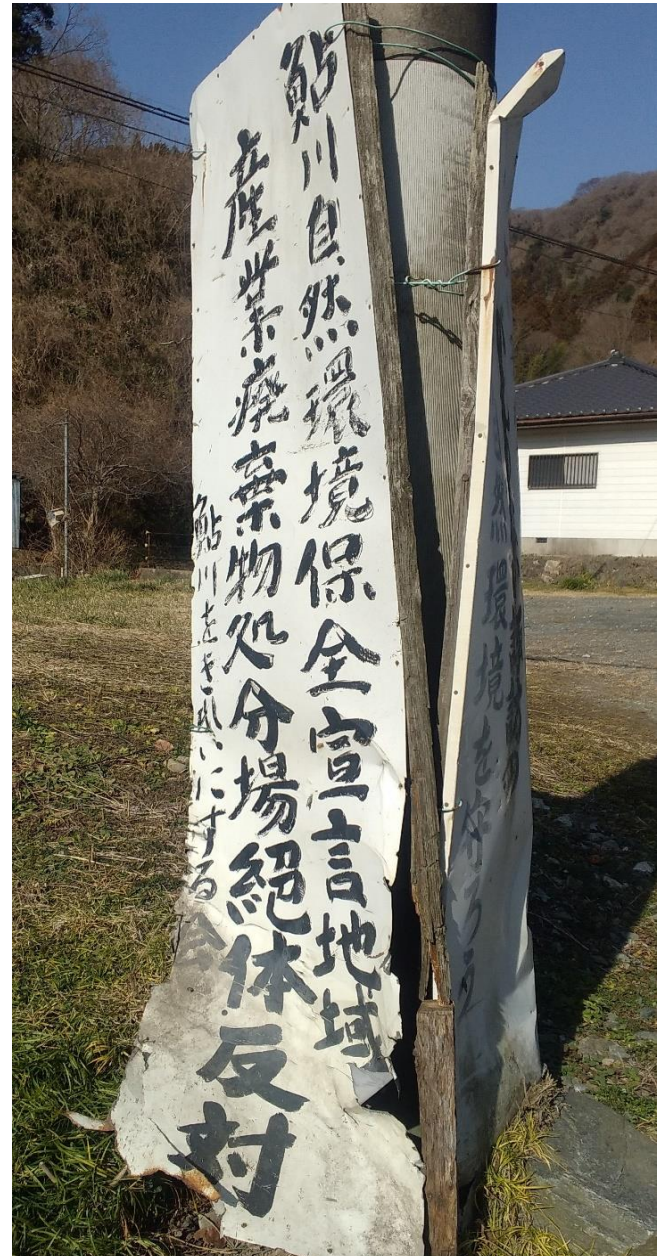 鮎川自然環境保全宣言地域
産業廃棄物処分場絶体反対
鮎川をきれいにする会
然環境を守ろう